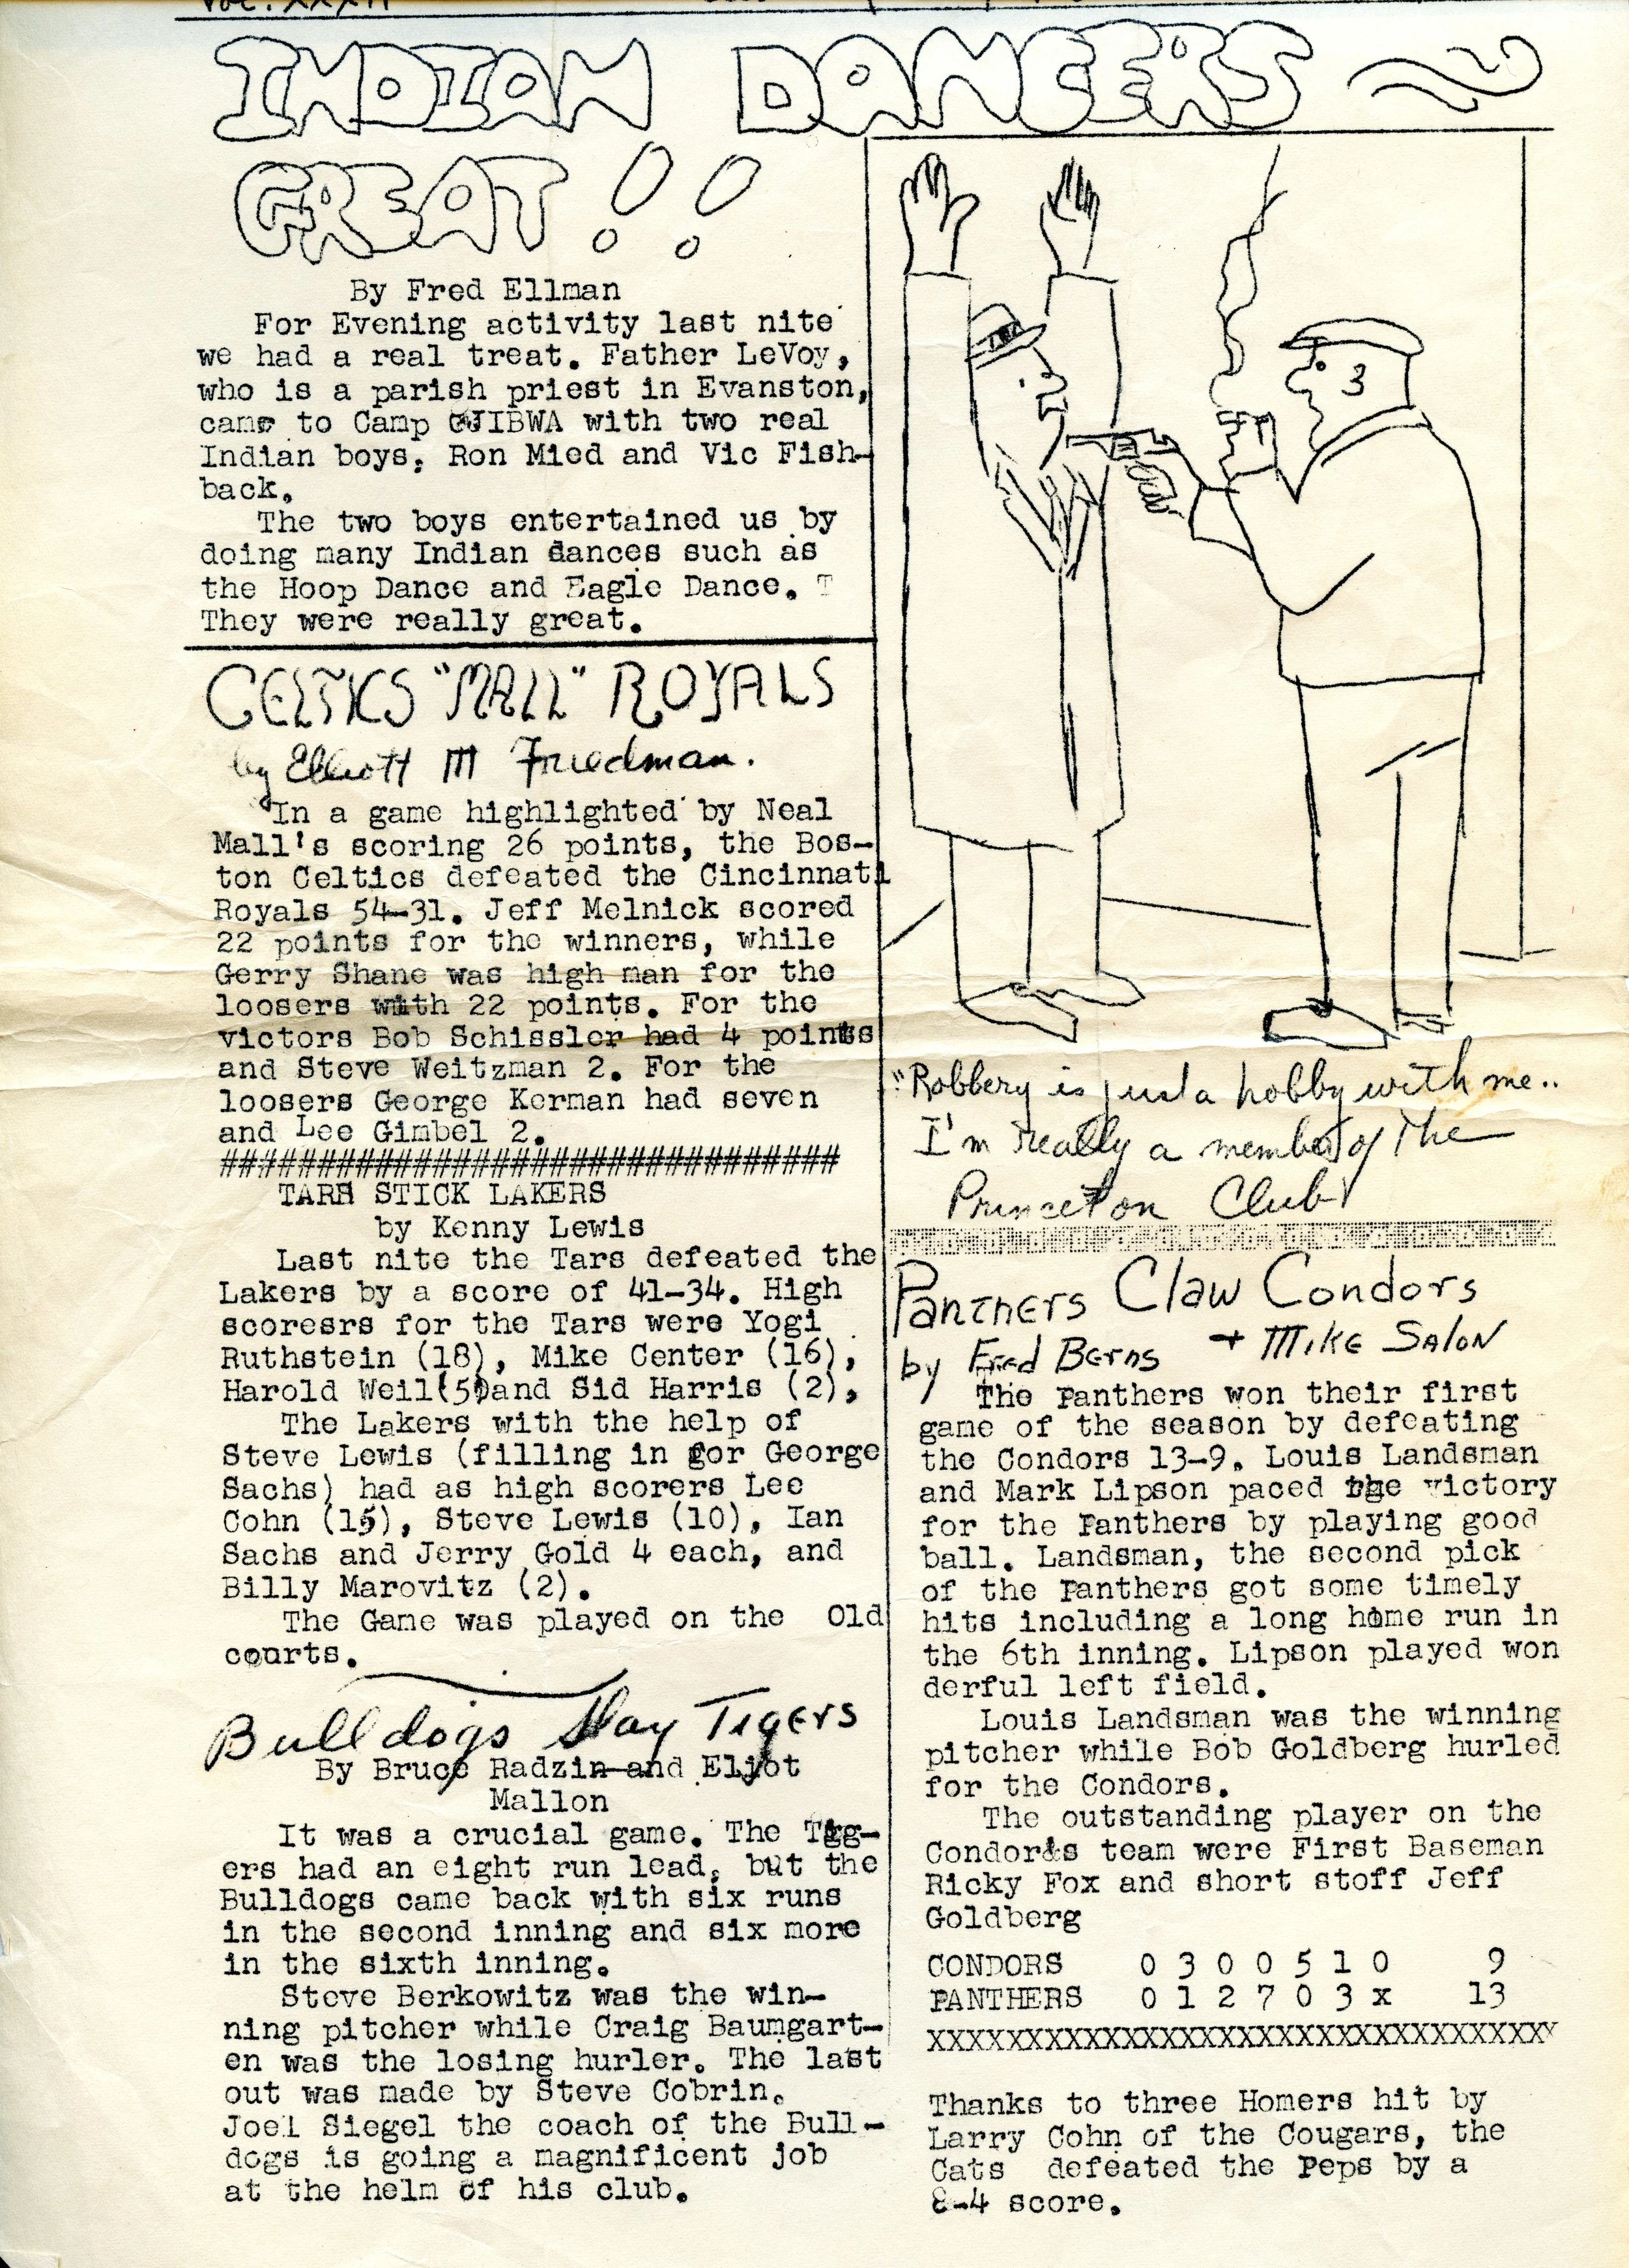 VOL. XXXII
INDIAN DANCERS
GREAT!!
By Fred Ellman
For Evening activity last nite
we had a real treat. Father LeVoy,
who is a parish priest in Evanston,
came to Camp OJIBWA with two real
Indian boys, Ron Mied and Vic Fish-
back.
The two boys entertained us by
doing many Indian dances such as
the Hoop Dance and Eagle Dance. T
They were really great.
CELTICS "MALL" ROYALS
by Elliott M Friedman.
In a game highlighted by Neal
Mall's scoring 26 points, the Bos-
ton Celtics defeated the Cincinnati
Royals 54-31. Jeff Melnick scored
22 points for the winners, while
Gerry Shane was high man for the
loosers with 22 points. For the
victors Bob Schissler had 4 points
and Steve Weitzman 2. For the
loosers George Kerman had seven
and Lee Gimbel 2.
################################
TARS STICK LAKERS
by Kenny Lewis
Last nite the Tars defeated the
Lakers by a score of 41-34. High
scoresrs for the Tars were Yogi
Ruthstein (18), Mike Center (16),
Harold Weil(5)and Sid Harris (2),
The Lakers with the help of
Steve Lewis (filling in for George
Sachs) had as high scorers Lee
Cohn (15), Steve Lewis (10), Ian
Sachs and Jerry Gold 4 each, and
Billy Marovitz (2).
The Game was played on the Old
courts.
Bulldogs Slay Tigers
By Bruce Radzin and Eliot
Mallon
It was a crucial game. The Tigg-
ers had an eight run lead, but the
Bulldogs came back with six runs
in the second inning and six more
in the sixth inning.
Steve Berkowitz was the win-
ning pitcher while Craig Baumgart-
en was the losing hurler. The last
out was made by Steve Cobrin.
Joel Siegel the coach of the Bull-
dogs is going a magnificent job
at the helm of his club.
3
"Robbery is just a hobby with me..
I'm really a member of The
Princeton Club!
Panthers Claw Condors
by Fred Berns + Mike Salon
The Panthers won their first
game of the season by defeating
the Condors 13-9. Louis Landsman
and Mark Lipson paced the victory
for the Panthers by playing good
ball. Landsman, the second pick
of the Panthers got some timely
hits including a long home run in
the 6th inning. Lipson played won
derful left field.
Louis Landsman was the winning
pitcher while Bob Goldberg hurled
for the Condors.
The outstanding player on the
Condors team were First Baseman
Ricky Fox and short stoff Jeff
Goldberg
CONDORS 0 3 0 0 5 1 0 9
PANTHERS 0 1 2 7 0 3 x 13
XXXXXXXXXXXXXXXXXXXXXXXXXXXXXXXXX
Thanks to three Homers hit by
Larry Cohn of the Cougars, the
Cats defeated the Peps by a
8-4 score.